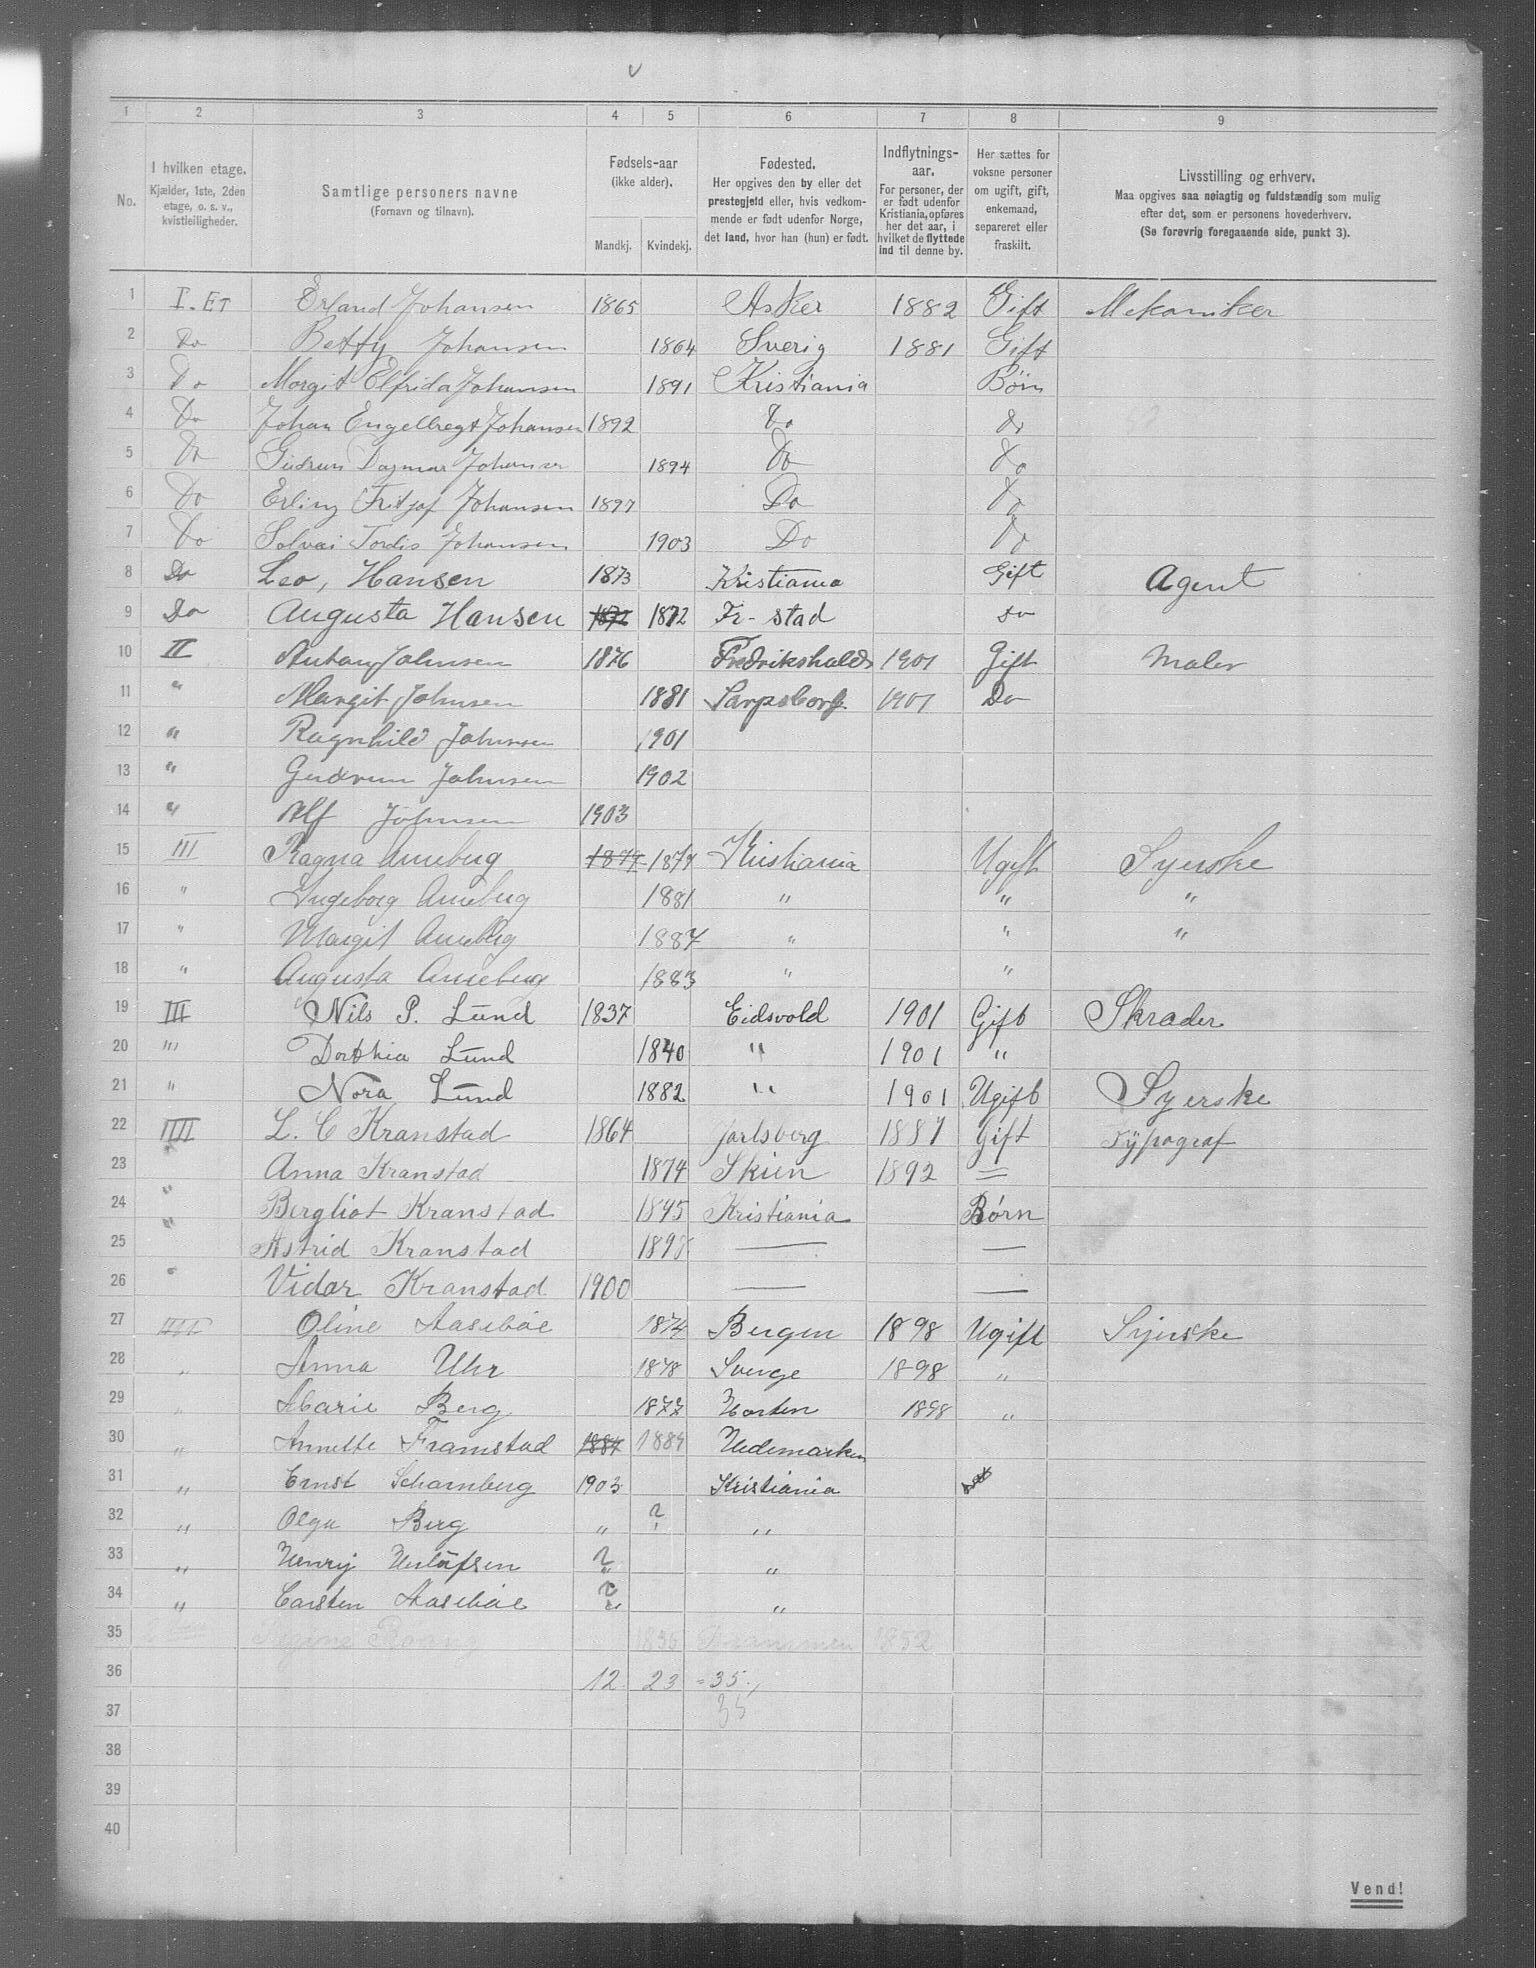 v
1 2 3 4 5 6 7 8 9
No.
I hvilken etage.
Kjælder, 1ste, 2den
etage, o. s. v.,
kvistleiligheder.
Samtlige personers navne
(Fornavn og tilnavn).
Fødsels-aar
(ikke alder).
Mandkj. Kvindekj.
Fødested.
Her opgives den by eller det
prestegjeld eller, hvis vedkom-
mende er født udenfor Norge,
det land, hvor han (hun) er født.
Indflytnings-
aar.
For personer, der
er født udenfor
Kristiania, opføres
her det aar, i
hvilket de flyttede
ind til denne by.
Her sættes for
voksne personer
om ugift, gift,
enkemand,
separeret eller
fraskilt.
Livsstilling og erhverv.
Maa opgives saa nøiagtig og fuldstændig som mulig
efter det, som er personens hovederhverv.
(Se forøvrig foregaaende side, punkt 3).
1 I. Et Erland Johansen 1865 Asker 1882 Gift Mekaniker
2 Do Betty Johansen 1864 Sverig 1881 Gift
3 Do Margit Elfrida Johansen 1891 Kristiania Børn
4 Do Johan Engelbregt Johansen 1892 Do do
5 Do Gudrun Dagmar Johansen 1894 Do Do
6 Do Erling Fritjof Johansen 1897 Do Do
7 Do Solvei Tordis Johansen 1903 Do Do
8 Do Leo, Hansen 1873 Kristiania Gift Agent
9 Do Augusta Hansen 1872 1872 Fr-stad do
10 II Anton Johnsen 1876 Fredrikshald 1901 Gift Maler
11 " Margit Johnsen 1881 Sarpsborg. 1901 Do
12 " Ragnhild Johnsen 1901
13 " Gudrun Johnsen 1902
14 " Alf Johnsen 1903
15 III Ragna Anneberg 1879 1879 Kristiania Ugift Syerske
16 " Ingeborg Anneberg 1881 " " "
17 " Margit Anneberg 1887 " " "
18 " Augusta Anneberg 1883 " "
19 III Nils P. Lund 1837 Eidsvold 1901 Gift Skrader
20 "' Dorthia Lund 1840 " 1901 "
21 " Nora Lund 1882 " 1901 Ugift Syerske
22 IIII L. C Kranstad 1864 Jarlsberg 1887 Gift Typograf
23 " Anna Kranstad 1874 Skien 1892 =
24 " Bergliot Kranstad 1895 Kristiania Børn
25 " Astrid Kranstad 1898 — —
26 " Vidar Kranstad 1900 — —
27 IIII Oline Aasebøe 1874 Bergen 1898 Ugift Syerske
28 " Anna Uhr 1878 Sverge 1898 "
29 " Marie Berg 1877 Horten 1898 "
30 " Annette Framstad 1884 1884 Hedemarken
31 " Ernst Scharnberg 1903 Kristiania
32 " Olga Berg " ? "
33 " Henry Gustafsen ? " "
34 " Carsten Aasebøe ? " "
35 Regine 1836 Drammen 1852
36 12 23 = 35.
37 35
38
39
40
Vend!